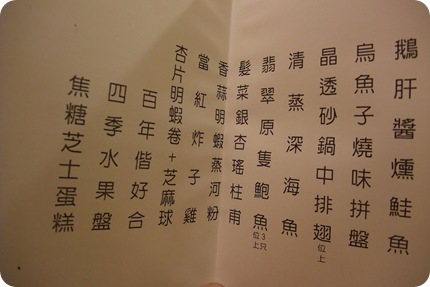 鵝肝醬燻鮭魚
烏魚子燒味拼盤
晶透砂鍋中排翅位上
清蒸深海魚
翡翠原隻鮑魚3只位上
髮菜銀杏瑤柱甫
香蒜明蝦蒸河粉
當紅炸子雞
杏片明蝦卷+芝麻球
百年偕好合
四季水果盤
焦糖芝士蛋糕